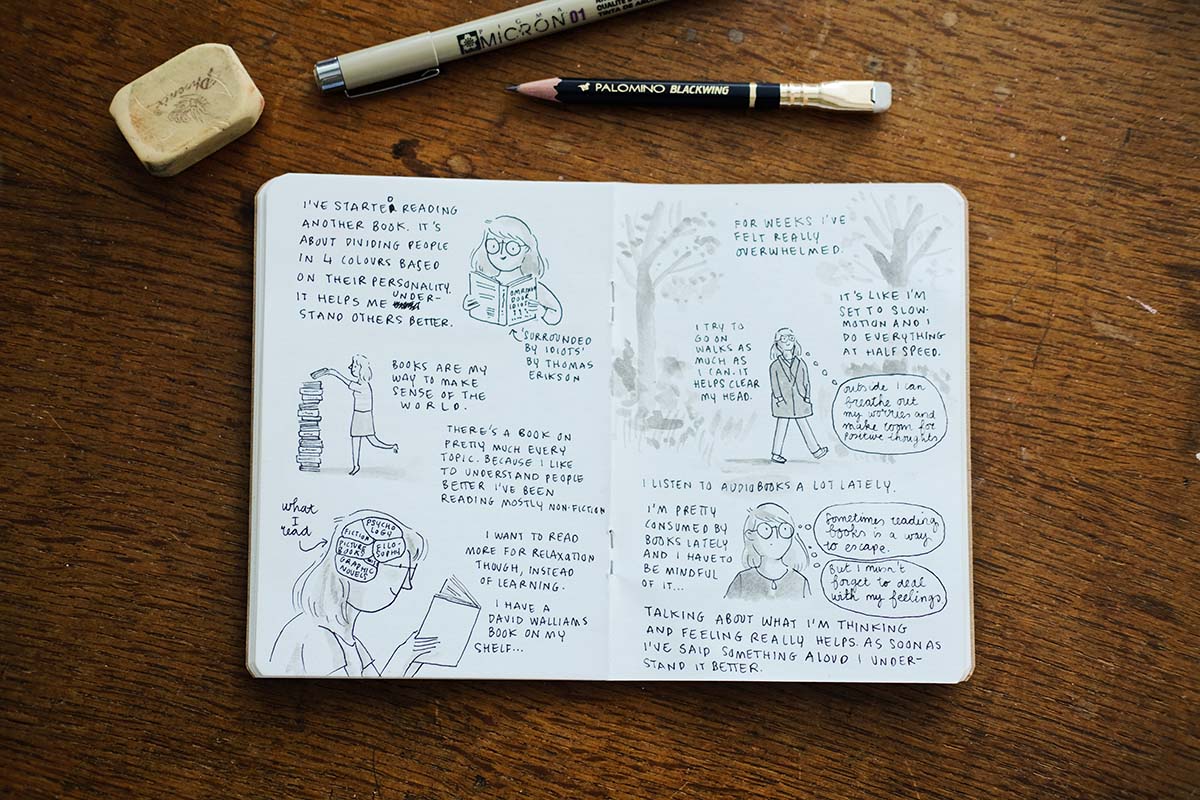 PIGMA
MICRON 01
PALOMINO BLACKWING
I'VE STARTED READING
ANOTHER BOOK. IT'S
ABOUT DIVIDING PEOPLE
IN 4 COLOURS BASED
ON THEIR PERSONALITY.
IT HELPS ME UNDER-
STAND OTHERS BETTER.
'SURROUNDED
BY IDIOTS'
BY THOMAS
ERIKSON
BOOKS ARE MY
WAY TO MAKE
SENSE OF THE
WORLD.
THERE'S A BOOK ON
PRETTY MUCH EVERY
TOPIC. BECAUSE I LIKE
TO UNDERSTAND PEOPLE
BETTER I'VE BEEN
READING MOSTLY NON-FICTION
what
I
read
PSYCHO
LOGY
FICTION
PICTURE
BOOKS
FILO-
SOPHY
GRAPHIC
NOVELS
I WANT TO READ
MORE FOR RELAXATION
THOUGH, INSTEAD
OF LEARNING.
I HAVE A
DAVID WALLIAMS
BOOK ON MY
SHELF...
FOR WEEKS I'VE
FELT REALLY
OVERWHELMED.
IT'S LIKE I'M
SET TO SLOW-
MOTION AND I
DO EVERYTHING
AT HALF SPEED.
I TRY TO
GO ON
WALKS AS
MUCH AS
I CAN. IT
HELPS CLEAR
MY HEAD.
outside I can
breathe out
my worries and
make room for
positive thoughts
I LISTEN TO AUDIOBOOKS A LOT LATELY.
I'M PRETTY
CONSUMED BY
BOOKS LATELY
AND I HAVE TO
BE MINDFUL
OF IT...
Sometimes reading
books is a way
to escape.
But I musn't
forget to deal
with my feelings
TALKING ABOUT WHAT I'M THINKING
AND FEELING REALLY HELPS. AS SOON AS
I'VE SAID SOMETHING ALOUD I UNDER-
STAND IT BETTER.